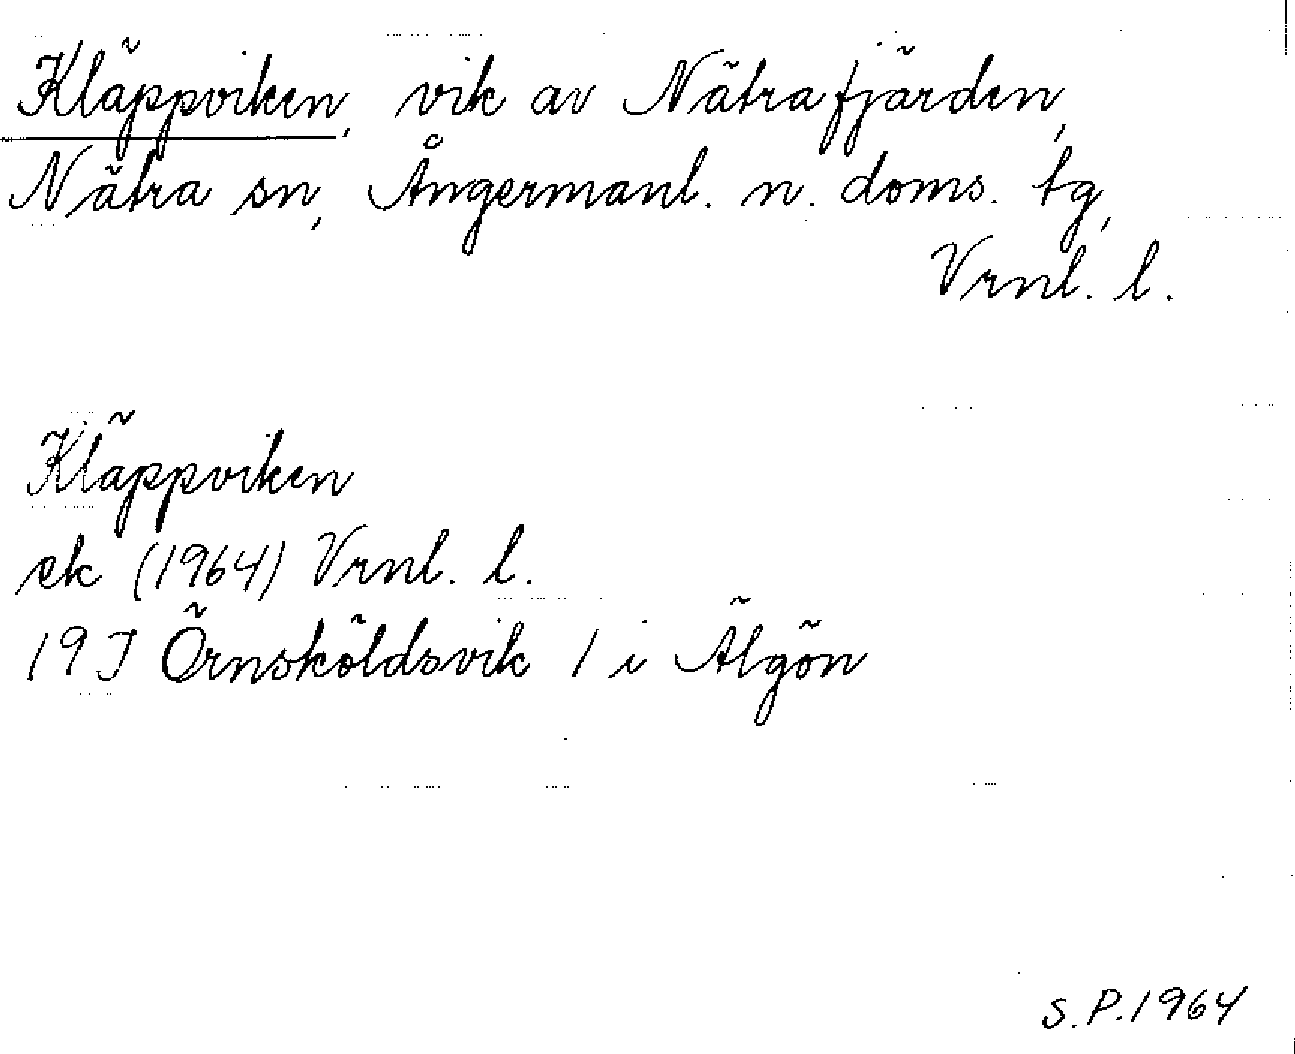 Kläppviken, vik av Nätrafjärden,
Nätra sn, Ångermanl. n. doms. tg,
Vrnl. l.
Kläppviken
ek (1964) Vrnl. l.
19J Örnsköldsvik 1 i Älgön
S.P.1964